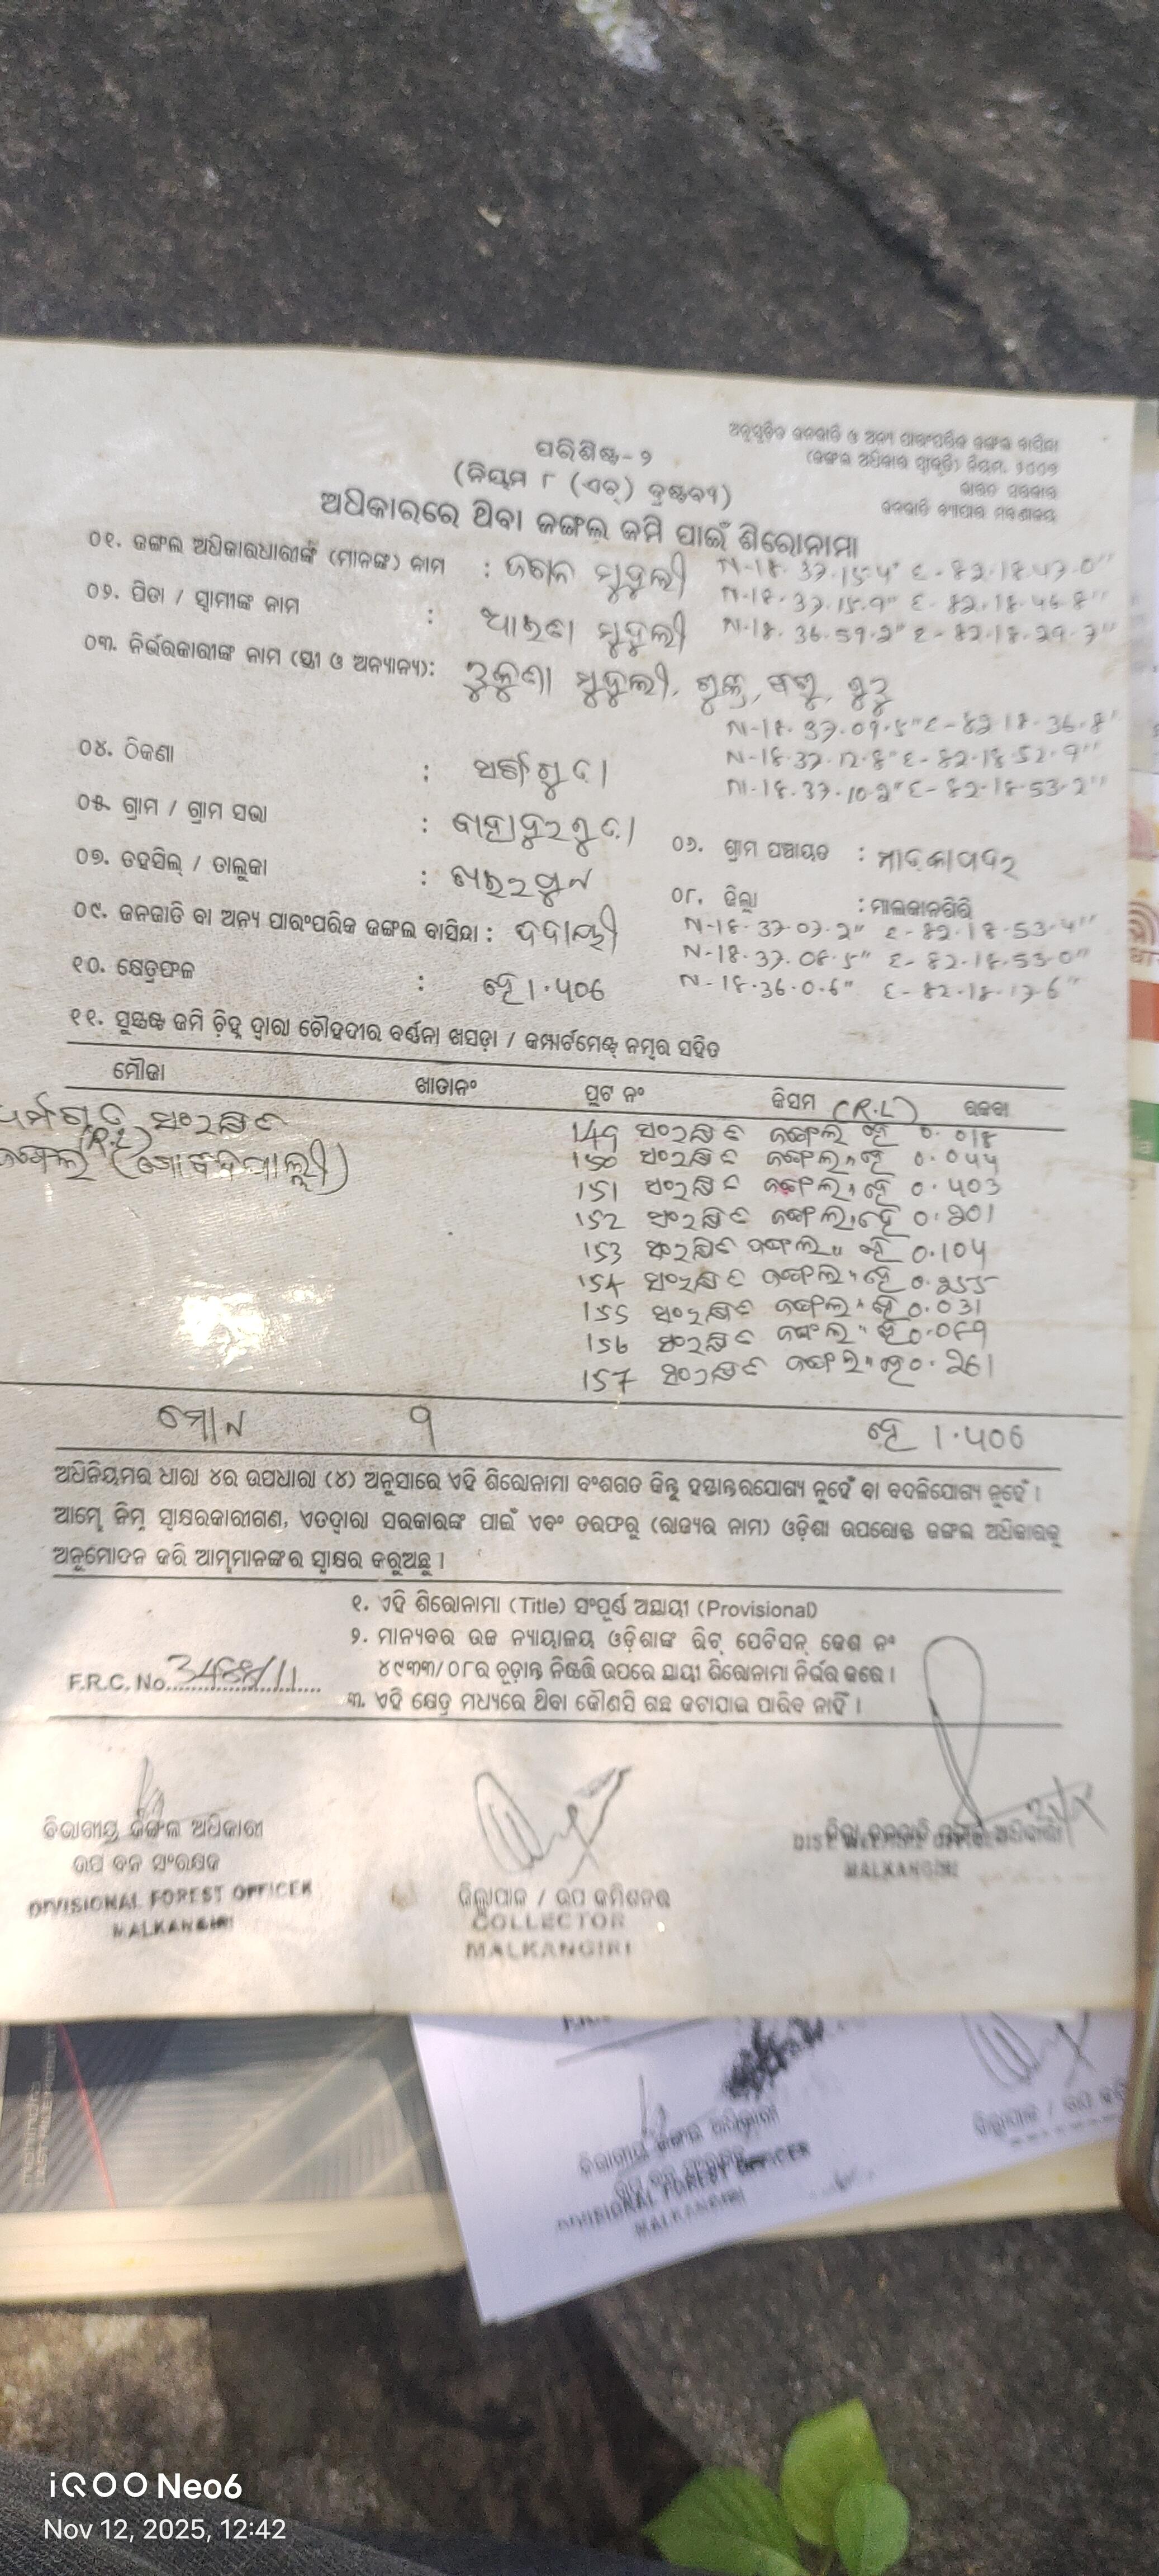 ପରିଶିଷ୍ଟ-୨
(ନିୟମ ୮ (ଏଚ୍) ଦ୍ରଷ୍ଟବ୍ୟ)
ଅନୁସୂଚିତ ଜନଜାତି ଓ ଅନ୍ୟ ପାରଂପରିକ ଜଙ୍ଗଲ ବାସିନ୍ଦା
(ଜଙ୍ଗଲ ଅଧିକାର ସ୍ୱୀକୃତି) ନିୟମ, ୨୦୦୭
ଭାରତ ସରକାର
ଜନଜାତି ବ୍ୟାପାର ମନ୍ତ୍ରଣାଳୟ
ଅଧିକାରରେ ଥିବା ଜଙ୍ଗଲ ଜମି ପାଇଁ ଶିରୋନାମା
୦୧. ଜଙ୍ଗଲ ଅଧିକାରଧାରୀଙ୍କ (ମାନଙ୍କ) ନାମ : ମୁଦୁଲୀ N-18. 37. 15.4" E-82.18.47.0"
N-18. 37.15.9" E-82.18.46.8"
୦୨. ପିତା / ସ୍ୱାମୀଙ୍କ ନାମ : ମୁଦୁଲୀ N-18. 36.59.2" E-82.18.29.7"
୦୩. ନିର୍ଭରକାରୀଙ୍କ ନାମ (ସ୍ତ୍ରୀ ଓ ଅନ୍ୟାନ୍ୟ): ମୁଦୁଲୀ,
N-18. 37.09.5" E-82.18.36.8"
୦୪. ଠିକଣା : N-18.37.12.8" E-82.18.52.9"
N-18.37.10.2" E-82.18.53.2"
୦୫. ଗ୍ରାମ / ଗ୍ରାମ ସଭା :
୦୬. ଗ୍ରାମ ପଞ୍ଚାୟତ :
୦୭. ତହସିଲ୍ / ତାଲୁକା :
୦୮. ଜିଲ୍ଲା : ମାଲକାନଗିରି
୦୯. ଜନଜାତି ବା ଅନ୍ୟ ପାରଂପରିକ ଜଙ୍ଗଲ ବାସିନ୍ଦା : N-18. 37.07.2" E-82.18.53.4"
N-18.37.08.5" E-82.18.53.0"
୧୦. କ୍ଷେତ୍ରଫଳ : ହେ 1.406 N-18.36.0.6" E-82.18.17.6"
୧୧. ସୁସ୍ପଷ୍ଟ ଜମି ଚିହ୍ନ ଦ୍ୱାରା ଚୌହଦୀର ବର୍ଣ୍ଣନା ଖସଡ଼ା / କମ୍ପାର୍ଟମେଣ୍ଟ ନମ୍ବର ସହିତ
ମୌଜା ଖାତାନଂ ପ୍ଲଟ ନଂ କିସମ (R.L) ରକବା
ସଂରକ୍ଷିତ 149 ସଂରକ୍ଷିତ ଜଙ୍ଗଲ ହେ 0.018
ଜଙ୍ଗଲ (R.L) 150 ସଂରକ୍ଷିତ ଜଙ୍ଗଲ " ହେ 0.044
151 ସଂରକ୍ଷିତ ଜଙ୍ଗଲ " ହେ 0.403
152 ସଂରକ୍ଷିତ ଜଙ୍ଗଲ " ହେ 0.201
153 ସଂରକ୍ଷିତ ଜଙ୍ଗଲ " ହେ 0.104
154 ସଂରକ୍ଷିତ ଜଙ୍ଗଲ " ହେ 0.255
155 ସଂରକ୍ଷିତ ଜଙ୍ଗଲ " ହେ 0.031
156 ସଂରକ୍ଷିତ ଜଙ୍ଗଲ " ହେ 0.089
157 ସଂରକ୍ଷିତ ଜଙ୍ଗଲ " ହେ 0.261
ମୋଟ 9 ହେ 1.406
ଅଧିନିୟମର ଧାରା ୪ର ଉପଧାରା (୪) ଅନୁସାରେ ଏହି ଶିରୋନାମା ବଂଶଗତ କିନ୍ତୁ ହସ୍ତାନ୍ତରଯୋଗ୍ୟ ନୁହେଁ ବା ବଦଳିଯୋଗ୍ୟ ନୁହେଁ ।
ଆମ୍ଭେ ନିମ୍ନ ସ୍ୱାକ୍ଷରକାରୀଗଣ, ଏତଦ୍ୱାରା ସରକାରଙ୍କ ପାଇଁ ଏବଂ ତରଫରୁ (ରାଜ୍ୟର ନାମ) ଓଡ଼ିଶା ଉପରୋକ୍ତ ଜଙ୍ଗଲ ଅଧିକାରକୁ
ଅନୁମୋଦନ କରି ଆମ୍ଭମାନଙ୍କର ସ୍ୱାକ୍ଷର କରୁଅଛୁ ।
୧. ଏହି ଶିରୋନାମା (Title) ସଂପୂର୍ଣ୍ଣ ଅସ୍ଥାୟୀ (Provisional)
୨. ମାନ୍ୟବର ଉଚ୍ଚ ନ୍ୟାୟାଳୟ ଓଡ଼ିଶାଙ୍କ ରିଟ୍ ପେଟିସନ୍ କେଶ ନଂ
୪୯୩୩/୦୮ର ଚୂଡ଼ାନ୍ତ ନିଷ୍ପତ୍ତି ଉପରେ ସ୍ଥାୟୀ ଶିରୋନାମା ନିର୍ଭର କରେ ।
F.R.C. No. 3488/11
୩. ଏହି କ୍ଷେତ୍ର ମଧ୍ୟରେ ଥିବା କୌଣସି ଗଛ କଟାଯାଇ ପାରିବ ନାହିଁ ।
ବିଭାଗୀୟ ଜଙ୍ଗଲ ଅଧିକାରୀ
ଉପ ବନ ସଂରକ୍ଷକ
DIVISIONAL FOREST OFFICER
MALKANGIRI
ଜିଲ୍ଲାପାଳ / ଉପ କମିଶନର
COLLECTOR
MALKANGIRI
DIST WELFARE OFFICER
MALKANGIRI
ବିଭାଗୀୟ ଜଙ୍ଗଲ ଅଧିକାରୀ
DIVISIONAL FOREST OFFICER
MALKANGIRI
ଜିଲ୍ଲାପାଳ / ଉପ
iQOO Neo6
Nov 12, 2025, 12:42